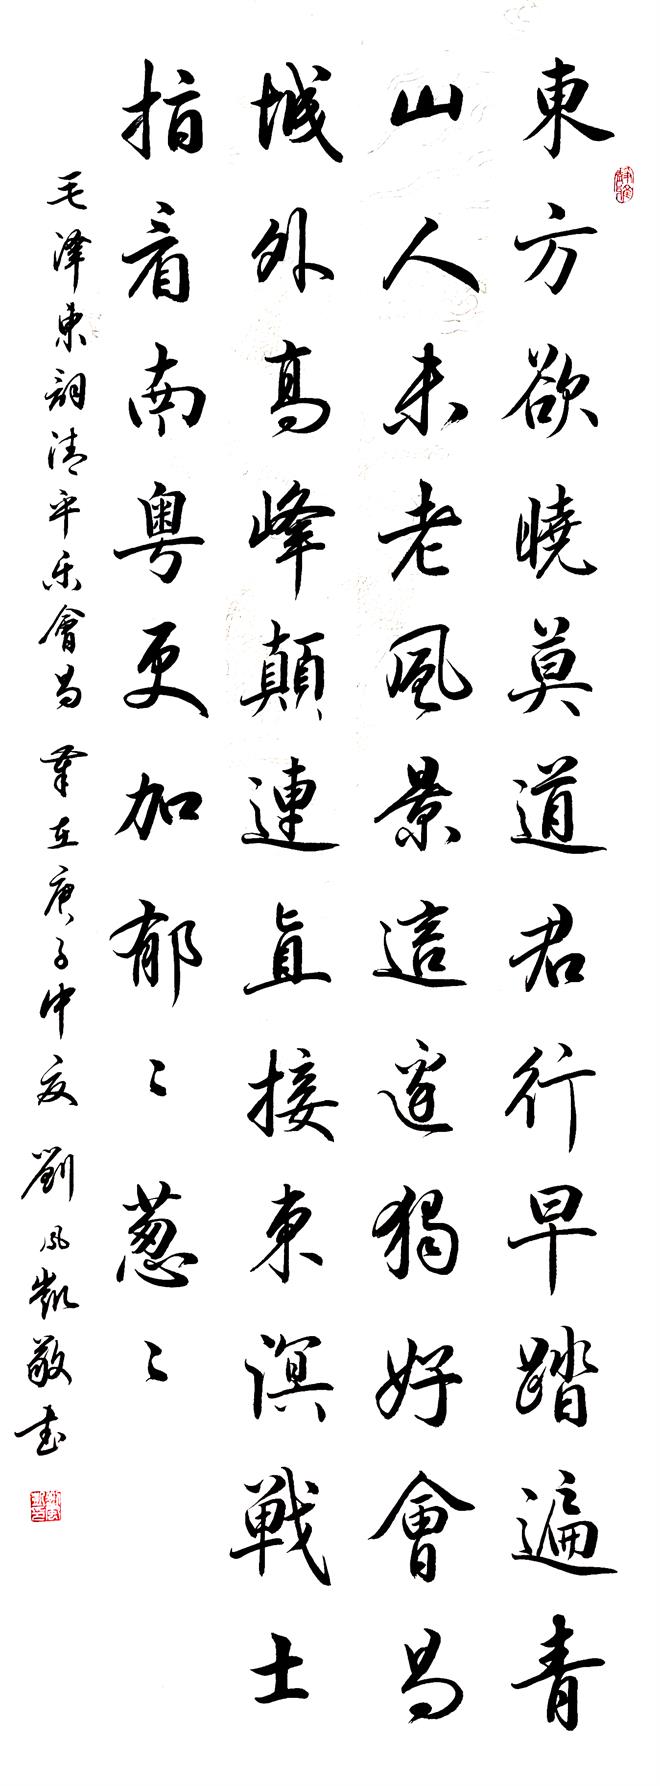 東方欲曉莫道君行早踏遍青
山人未老風景這邊獨好會昌
城外高峰顛連直接東溟戰士
指看南粤更加郁〻葱〻
毛澤東詞清平乐會昌 歲在庚子中夏 劉鳳凱敬書